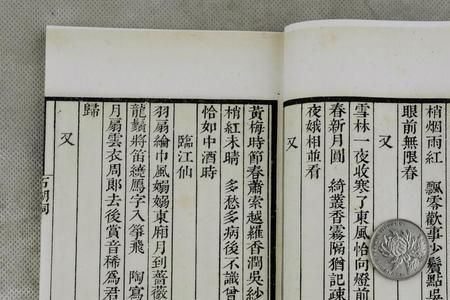 梢烟雨紅　飄零歡事少鬢點吳
眼前無限春
又
雪林一夜收寒了東風恰向燈前
春新月圓　綺叢香霧隔猶記疎
夜蛾相並看
又
黃梅時節春蕭索越羅香潤吳紗
梢紅未晴　多愁多病後不識曾
恰如中酒時
臨江仙
羽扇綸巾風嫋嫋東廂月到薔薇
龍鬚將笛繞鴈字入箏飛　陶寫
月扇雲衣周郎去後賞音稀為君
歸
又
石湖詞